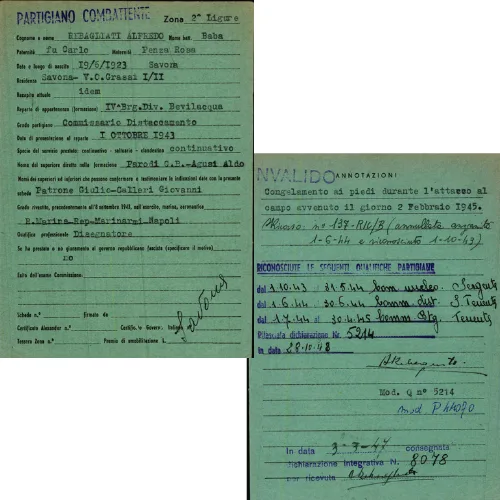 PARTIGIANO COMBATTENTE Zona 2ª Ligure
Cognome e nome RIBAGLIATI ALFREDO Nome batt. Baba
Paternità fu Carlo Maternità Penza Rosa
Data e luogo di nascita 19/6/1923 Savona
Residenza Savona- V.C.Grassi I/II
Recapito attuale idem
Reparto di appartenenza (formazione) IV^Brg.Div. Bevilacqua
Grado partigiano Commissario Distaccamento
Data di presentazione al reparto I OTTOBRE 1943
Specie del servizio prestato: continuativo - saltuario - clandestino continuativo
Nome del superiore diretto nella formazione Parodi G.B.-Agusi Aldo
Nomi dei superiori od inferiori che possono confermare e testimoniare le indicazioni date con la presente
scheda Patrone Giulio-Calleri Giovanni
Grado rivestito, precedentemente all'8 settembre 1943, nell'esercito, marina, aeronautica
R.Marina-Rep-Marinarsi-Napoli
Qualifica professionale Disegnatore
Se ha prestato o no giuramento al governo repubblicano (seciata specificare il motivo)
no
Salvo dell'esame Commissione:
Scheda n.° firmata da
Certificato Alexander n.° Certific. v. Govern. Italiano
Tessera Zona n.° Premio di smobilitazione L.
Savona
INVALIDO ANNOTAZIONI
Congelamento ai piedi durante l'attacco al
campo avvenuto il giorno 2 Febbraio 1945.
1-6-44 e riconosciuto 1-10-43)
RICONOSCIUTE LE SEGUENTI QUALIFICHE PARTIGIANE
dal 1.10.43 al 31.5.44 com. nucleo. Sergente
dal 1.6.44 al 30.6.44 comm. dist. S. Tenente
dal 1.7.44 al 30.4.45 comm. Btg. Tenente
Rilasciata dichiarazione Nr. 5214
In data 28.10.48
Mod. Q nº 5214
In data 3-7-47 consegnata
dichiarazione integrativa N. 8078
per ricevuta